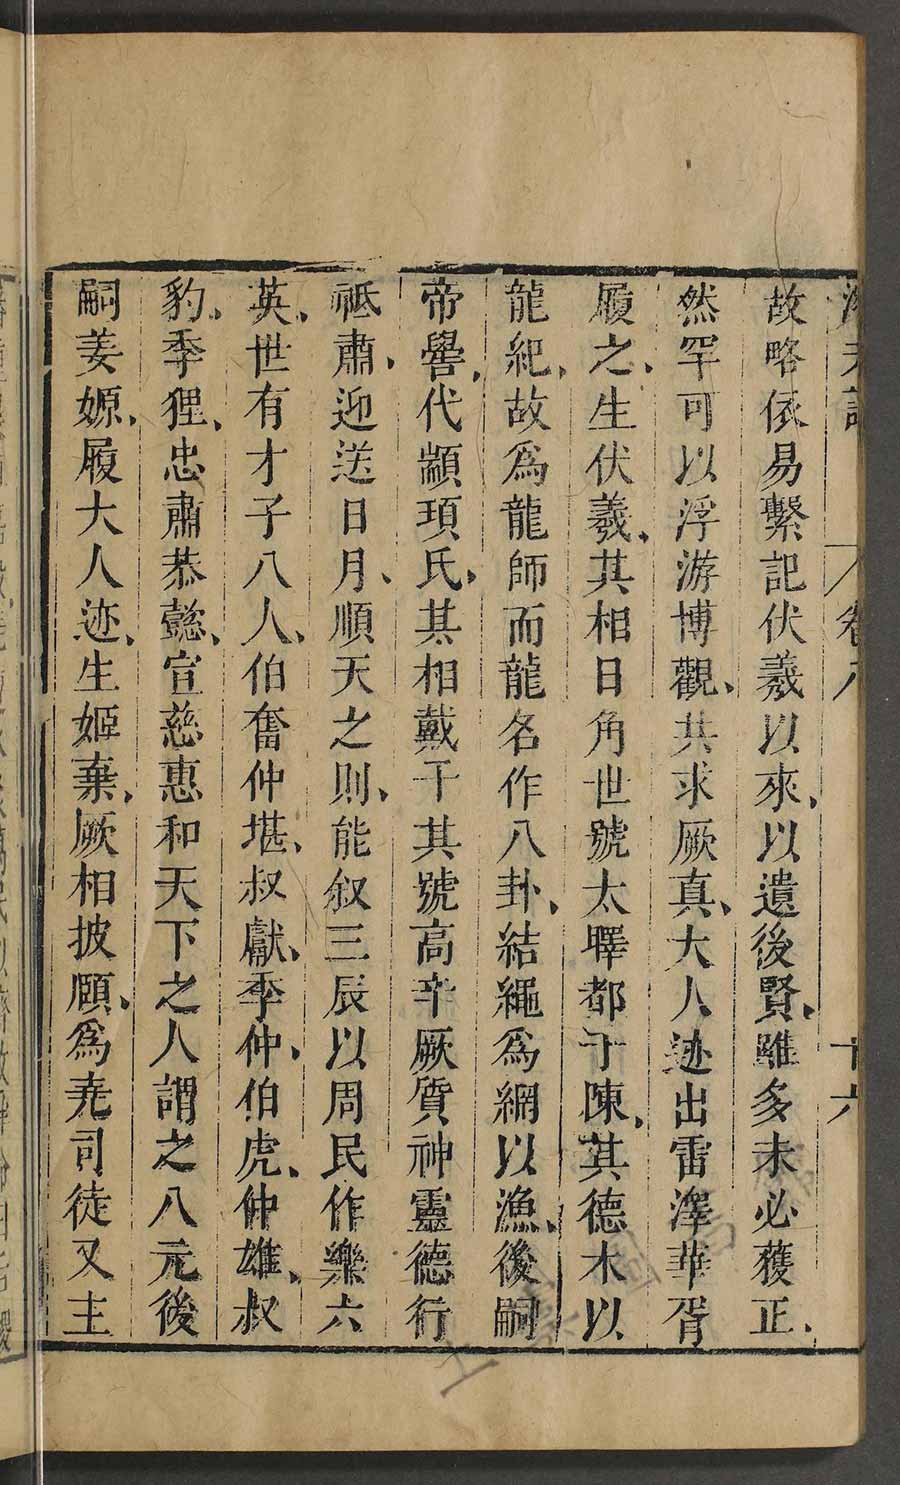 卷八
十六
故略依易繫記伏羲以來、以遺後賢、雖多未必獲正、
然罕可以浮游博觀、共求厥真、大人迹出雷澤華胥
履之、生伏羲、其相日角世號太曎都于陳、其德木以
龍紀、故爲龍師而龍名作八卦、結繩爲網以漁、後嗣
帝嚳、代顓頊氏、其相戴干其號高辛厥質神靈德行
祗肅、迎送日月、順天之則、能叙三辰以周民作樂六
英、世有才子八人、伯奮仲堪、叔獻、季仲、伯虎、仲雄、叔
豹、季狸、忠肅恭懿、宣慈惠和天下之人謂之八元後
嗣姜嫄、履大人迹、生姬棄、厥相披頤、爲堯司徒又主